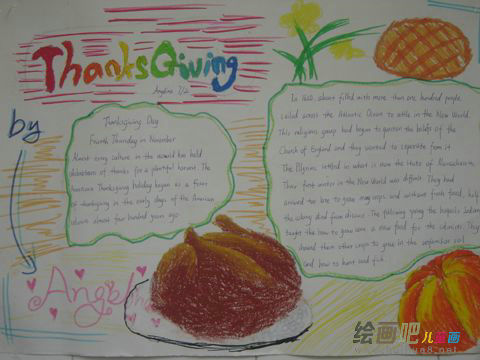 ThanksGiving
Angelina
by
Angel
Thanksgiving Day
Fourth Thursday in November
Almost every culture in the world has held
celebrations of thanks for a plentiful harvest. The
American Thanksgiving holiday began as a feast
of thanksgiving in the early days of the American
almost four hundred years ago
In 1620, about filled with more than one hundred people
sailed across the Atlantic Ocean to settle in the New World.
This religious group had begun to question the beliefs of the
Church of England and they wanted to separate from it
The Pilgrims settled in what is now the state of Massachusetts.
Their first winter in the New World was difficult. They had
arrived too late to grow many crops and without fresh food, half
the colony died from disease. The following spring the Iroquois Indians
taught them how to grow corn a new food for the colonists. They
showed them other crops to grow in the unfamiliar soil
and how to hunt and fish
绘画吧 儿童画